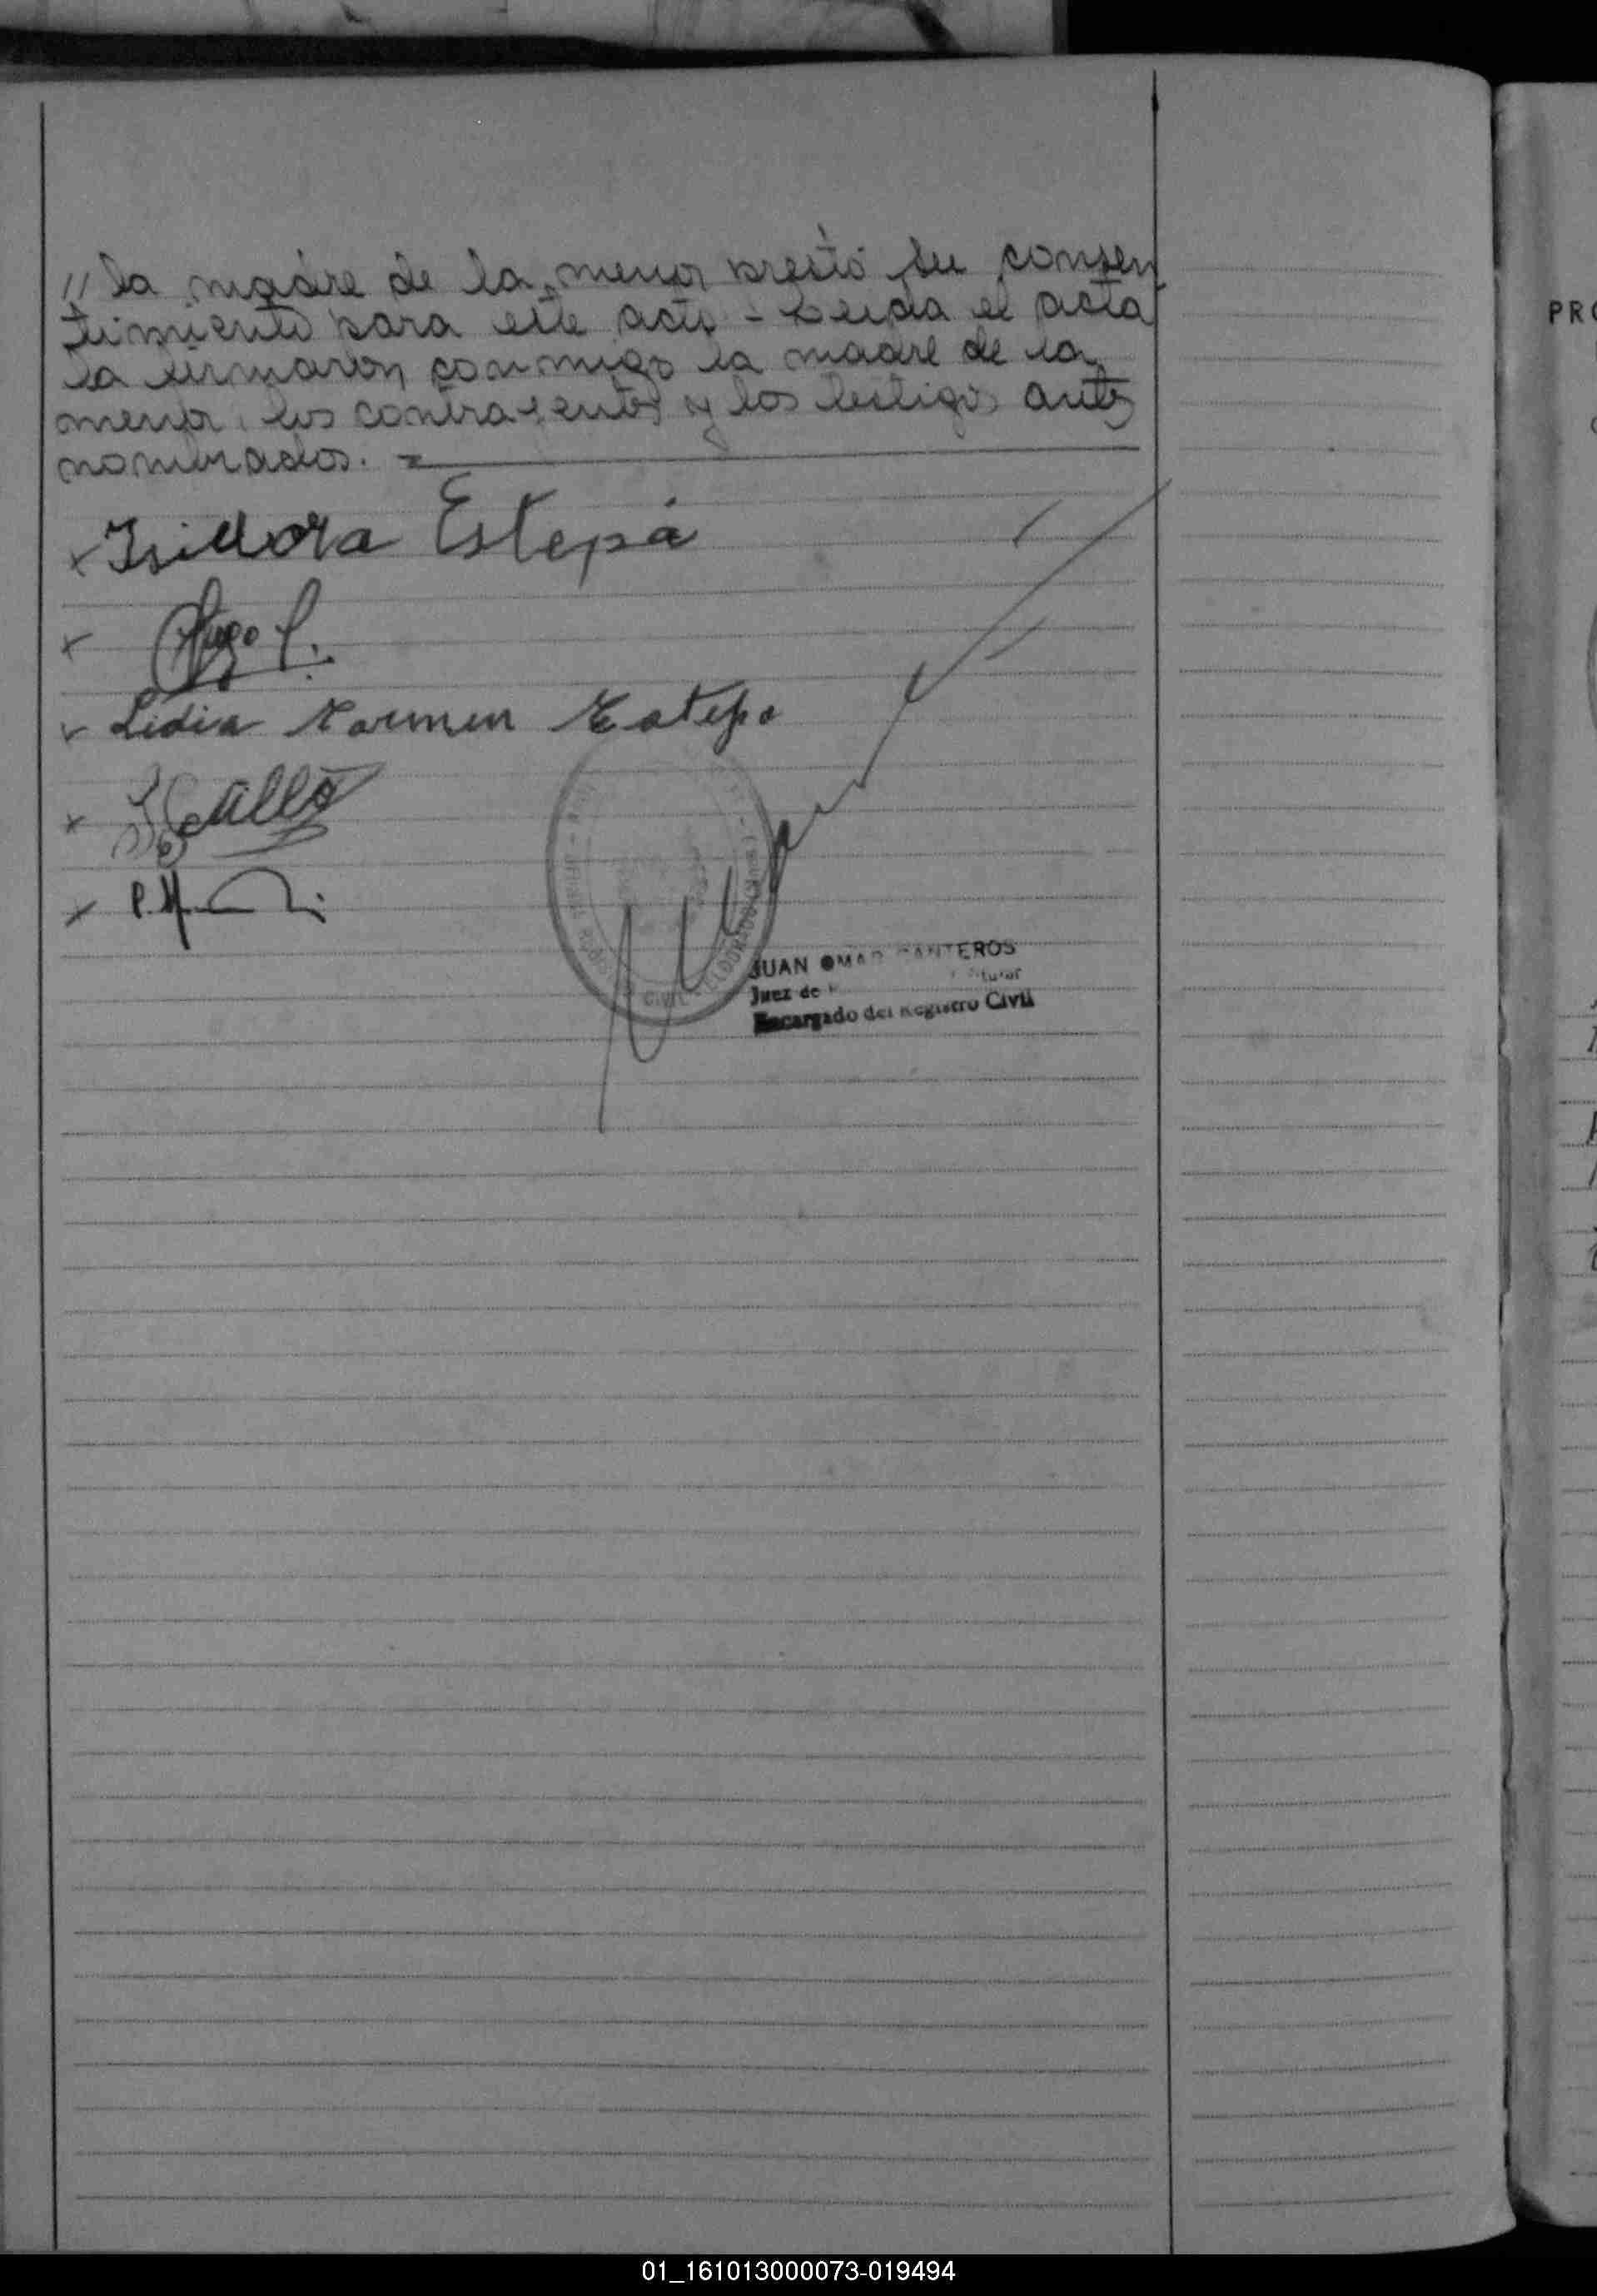 // la madre de la menor prestó su consen
timiento para este acto - Leida el acta
la firmaron conmigo la madre de la
menor, los contrayentes y los testigos antes
nombrados. =
x Isidora Estepá
x Hugo
x Lidia Karmen Estepa
x Gallo
x P.M.
JUAN OMAR CANTEROS
Juez de
Encargado del Registro Civil
PRO
01_161013000073-019494